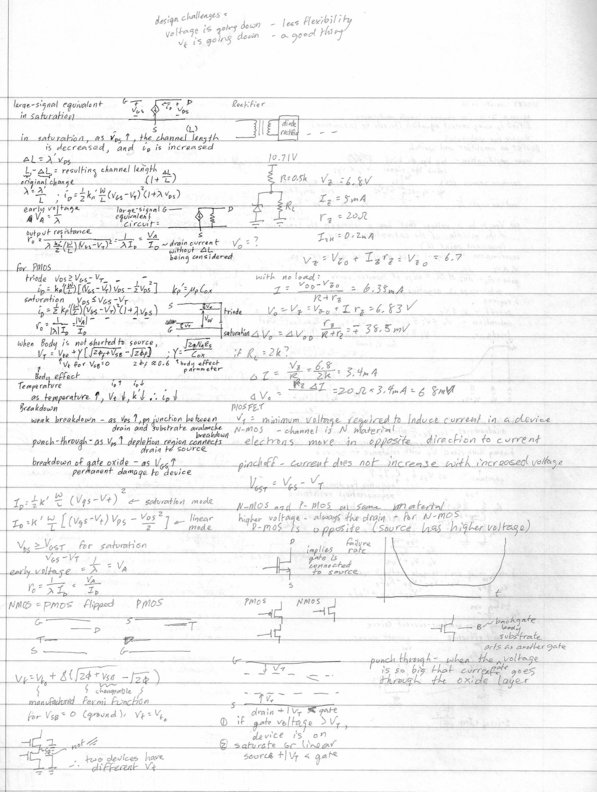 design challenges:
voltage is going down - less flexibility
Vt is going down - a good thing
large-signal equivalent
in saturation
G
D
VGS
VDS
S
in saturation, as VDS ↑, the channel length (L)
is decreased, and iD is increased
ΔL = λ' VDS
L - ΔL = resulting channel length
original change (1 + ΔL/L)
λ = λ'/L ; iD = 1/2 kn' W/L (VGS-Vt)² (1+λVDS)
early voltage
VA = 1/λ
large-signal
equivalent
circuit =
G
D
S
output resistance
= 1/(λ ID) = VA/ID
drain current
without ΔL
being considered
for PMOS
triode VDS ≥ VGS - VT
iD = kp' (W/L) [(VGS-Vt) VDS - 1/2 VDS²] kp' = μp Cox
saturation VDS ≤ VGS - VT
iD = 1/2 kp' (W/L) (VGS-Vt)² (1+λVDS)
ro = 1/(|λ| ID) = |VA|/ID
triode
saturation
when Body is not shorted to source,
body effect
parameter
Body effect
Temperature
as temperature ↑, Vt ↓, k' ↓ ∴ iD ↓
Breakdown
weak breakdown - as VDS ↑, pn junction between
drain and substrate avalanche
breakdown
punch-through - as VDS ↑ depletion region connects
drain to source
breakdown of gate oxide - as VGS ↑
permanent damage to device
ID = 1/2 k' W/L (VGS - Vt)² ← saturation mode
ID = k' W/L [(VGS - Vt) VDS - VDS²/2] ← linear
mode
VDS ≥ VGST for saturation
VGS - VT
early voltage = 1/λ = VA
ro = 1/(λ ID) = VA/ID
NMOS = PMOS flipped PMOS
G
D
T
S
S
T
D
G
Vt = Vto + γ(√(2φ + VSB) - √(2φ))
changeable
manufactured fermi function
for VSB = 0 (ground), Vt = Vto
not =
∴ two devices have
different Vt
Rectifier
diode
rectifier
10.71V
R = 0.5k
RL
VZ = 6.8V
IZ = 5mA
rZ = 20Ω
IZK = 0.2mA
VO = ?
VZ = VZO + IZ rZ = VZO = 6.7
with no load:
I = (VDD - VZO)/(R + rZ) = 6.35mA
VO = VZ = VZO + I rZ = 6.83V
ΔVO = ΔVDD rZ/(R + rZ) = ∓ 38.5mV
if RL = 2k?
ΔI = VZ/RL = 6.8/2k = 3.4mA
ΔVO = rZ ΔI = 20Ω × 3.4mA = 68mV
MOSFET
VT = minimum voltage required to induce current in a device
N-MOS - channel is N material
electrons move in opposite direction to current
pinchoff - current does not increase with increased voltage
VGST = VGS - VT
N-MOS and P-MOS on same material
higher voltage - always the drain - for N-MOS
P-MOS is opposite (source has higher voltage)
D
S
implies
gate is
connected
to source
failure
rate
t
PMOS
NMOS
B
backgate
body
substrate
acts as another gate
G
VT
S
VT
drain + |VT| gate
① if gate voltage > VT,
device is on
② saturate or linear
source + |VT| < gate
punch through - when the gate voltage
is so big that current goes
through the oxide layer